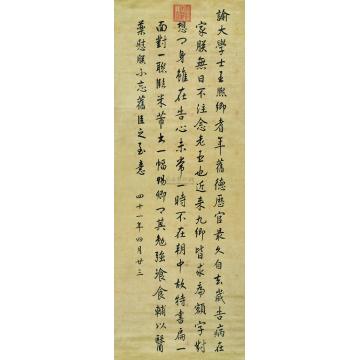 諭大學士王熙卿耆年舊德歷官最久自去歲告病在
家朕無日不注念老臣也近来九卿皆求匾額字對
想卿身雖在告心未常一時不在朝中故特書匾一
面對一聯臨米芾書一幅賜卿卿其勉強飡食輔以醫
藥慰朕不忘舊臣之至意
四十一年四月廿三